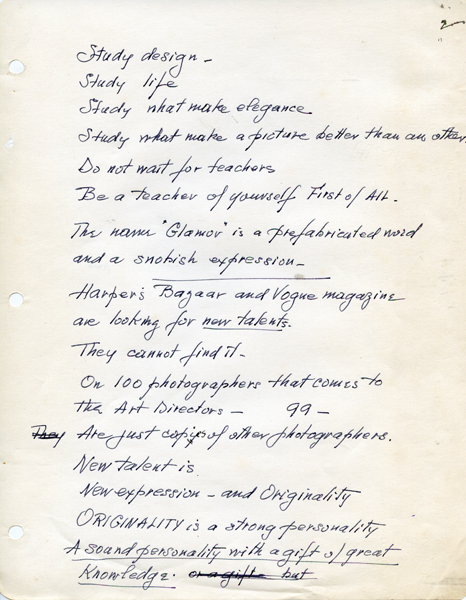 2
Study design -
Study life
Study what make elegance
Study what make a picture better than an other.
Do not wait for teachers
Be a teacher of yourself First of All.
The name "Glamor" is a prefabricated word
and a snobish expression -
Harper's Bazaar and Vogue magazine
are looking for new talents.
They cannot find it -
On 100 photographers that comes to
the Art Directors - 99 -
They Are just copys of other photographers.
New talent is
New expression - and Originality
ORIGINALITY is a strong personality
A sound personality with a gift of great
Knowledge. or a gift - but